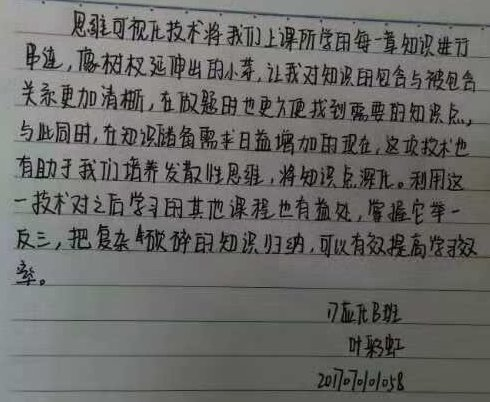 思维可视化技术将我们上课所学的每一章知识进行
串连，像树杈延伸出的小芽，让我对知识的包含与被包含
关系更加清晰，在做题时也更方便找到需要的知识点。
与此同时，在知识储备需求日益增加的现在，这项技术也
有助于我们培养发散性思维，将知识点深化。利用这
一技术对之后学习的其他课程也有益处，掌握它举一
反三，把复杂破碎的知识归纳，可以有效提高学习效
率。
17应化B班
叶彩虹
20170701058